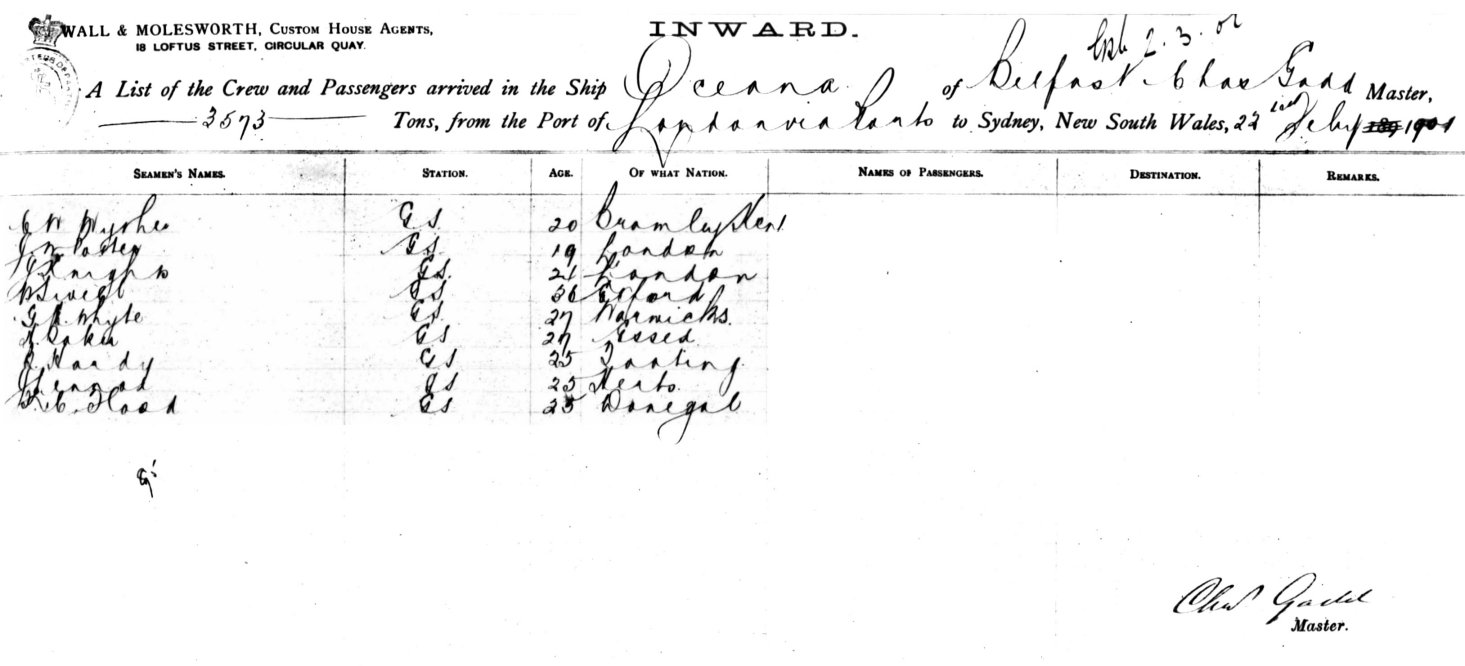 WALL & MOLESWORTH, CUSTOM HOUSE AGENTS,
18 LOFTUS STREET, CIRCULAR QUAY.
INWARD.
2.3.01
A List of the Crew and Passengers arrived in the Ship Oceana of Belfast Chas Gadd Master,
3573 Tons, from the Port of London via Ports to Sydney, New South Wales, 22 Feby 1901
SEAMEN'S NAMES. STATION. AGE. OF WHAT NATION. NAMES OF PASSENGERS. DESTINATION. REMARKS.
GS 20 Bromley Kent
GS 19 London
J Knight GS 21 London
GS 36
G. Whyte GS 27 Warwicks.
GS 27 Essex
Hardy GS 25 Tooting
GS 25 Herts.
Flood GS 25 Donegal
Chas Gadd
Master.